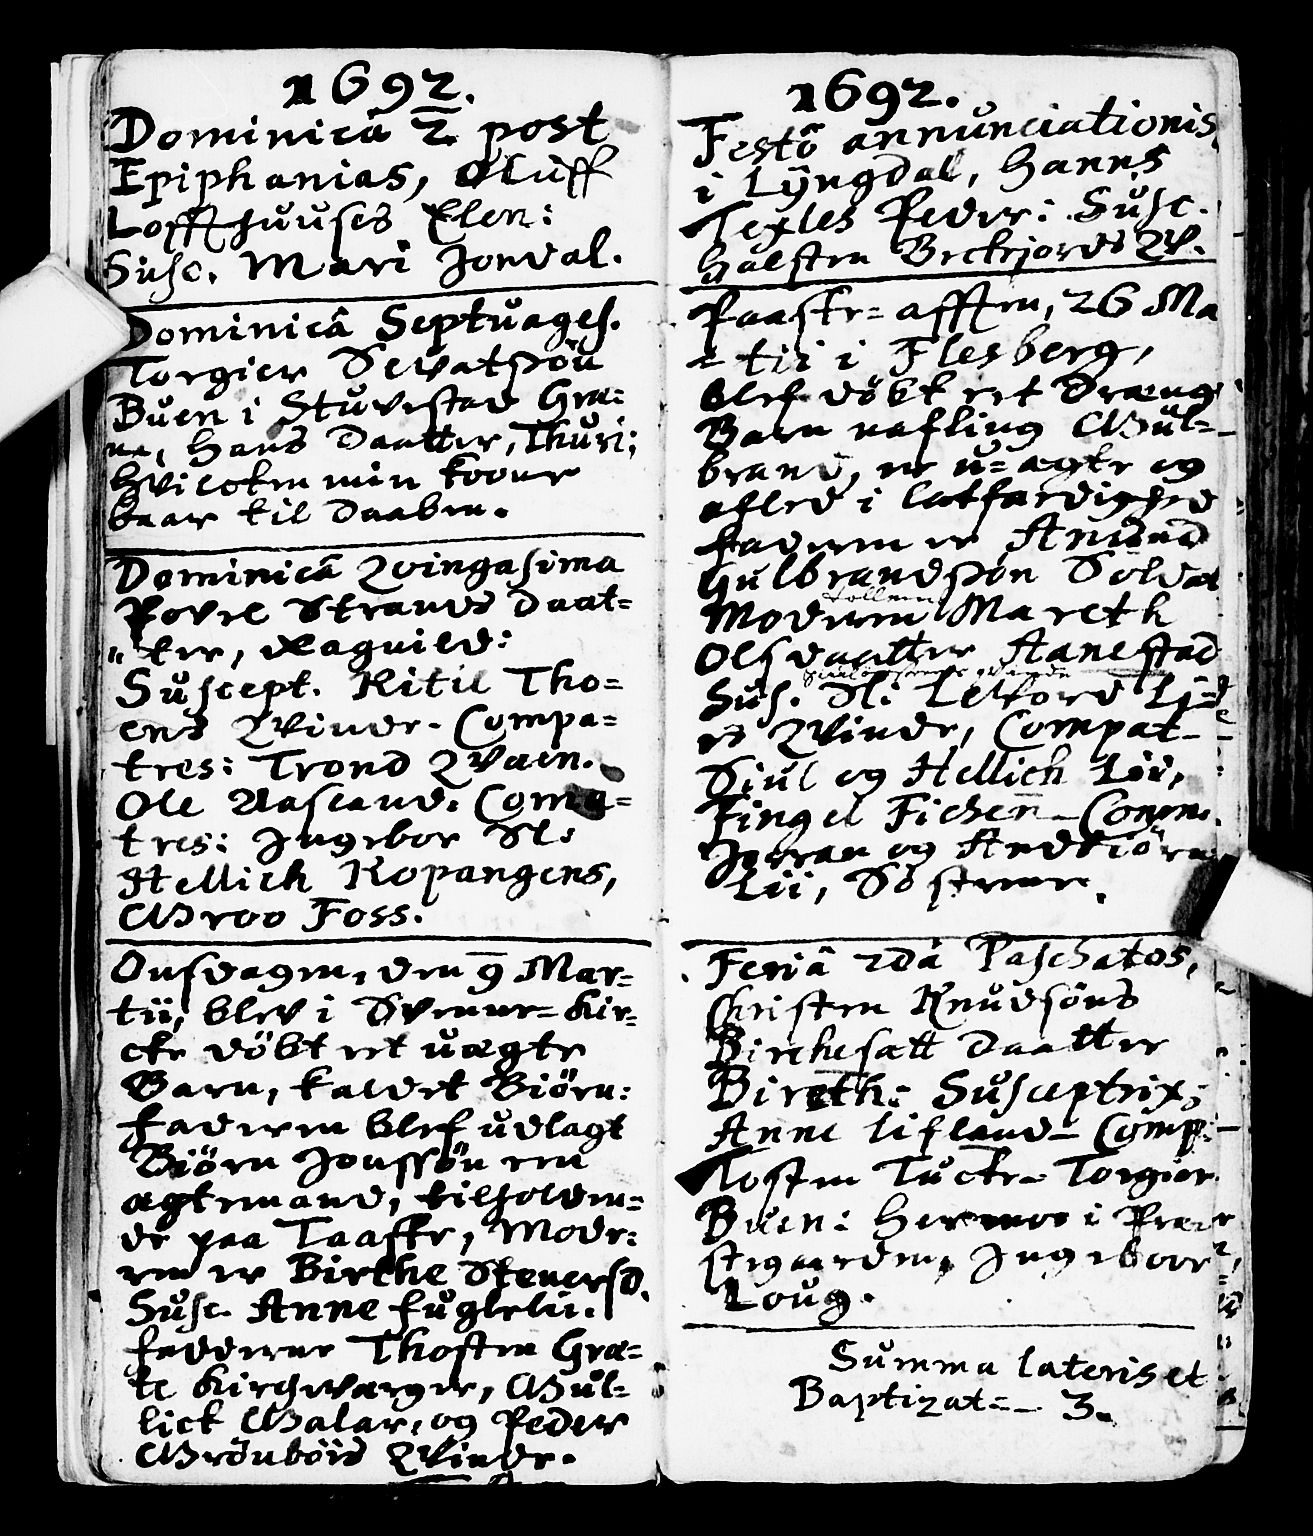 1692.
Dominicâ 2 post
Epiphanias, Oluff
Loffthuuses Elen:
Susc. Mari Jondal.
Dominicâ Septuages.
Torgier Sevatsøn
Buen i Stuvestad Græ:
ne, Hans Daatter, Thuri;
hvilcken min koone
baar til Daaben.
Dominicâ Qvingasima
Povel Strands Daat=
"ter, Ragnild:
Suscept. Kitil Tho=
ens Qvinde. Compa=
tres: Trond Qvaen.
Ole Aasland. Coma=
tres: Ingebor St:
Hellich Kopangens,
Groo Foss.
Onsdagen, den 9 Mar=
tii, blev i Svenne=Kir=
cke döbt eet uægte
Barn, kaldet Biörn:
faderen blef udlagt
Biörn Jonssøn een
ægtemand, tilholden=
de paa Taaffte, Mode=
ren er Birthe Stenersd.
Susc. Anne fuglelii.
fadderne Thosten Græ=
te Kirchevarger, Gul=
lick Galar, og Peder
Grönböis Qvinde.
1692.
Festô annunciationis
i Lÿngdal, Hanns
Texles Peder: Susc.
Halsten Beckjords Qv.
Paaske=afften, 26 Ma
=tii i Flesberg,
blef döbt eet Dræng
Barn nafling Gul=
brand, er u=ægte og
afled i letfærdighed
faderen er Amund
Gulbrandssøn Soldat
Moderen Mareth
Olsdaatter Aanestad
Sus. St: Levord Lij=
es Qvinde, Compat
Siul og Hellich Lii,
Fingel Fichen Comm.
Jorran og Andbiörn
Lii, Söstrene.
Feriâ 2dâ Paschatos,
Christen Knudsöns
Birchesætt Daatter
Bireth: Susceptrix;
Anne Lifland Comp:
Tosten Tucke Torgier
Buen: Hermoe i Præ
stegaarden, Ingeboor
Loug.
Summa lateris et
Baptizat= 3.